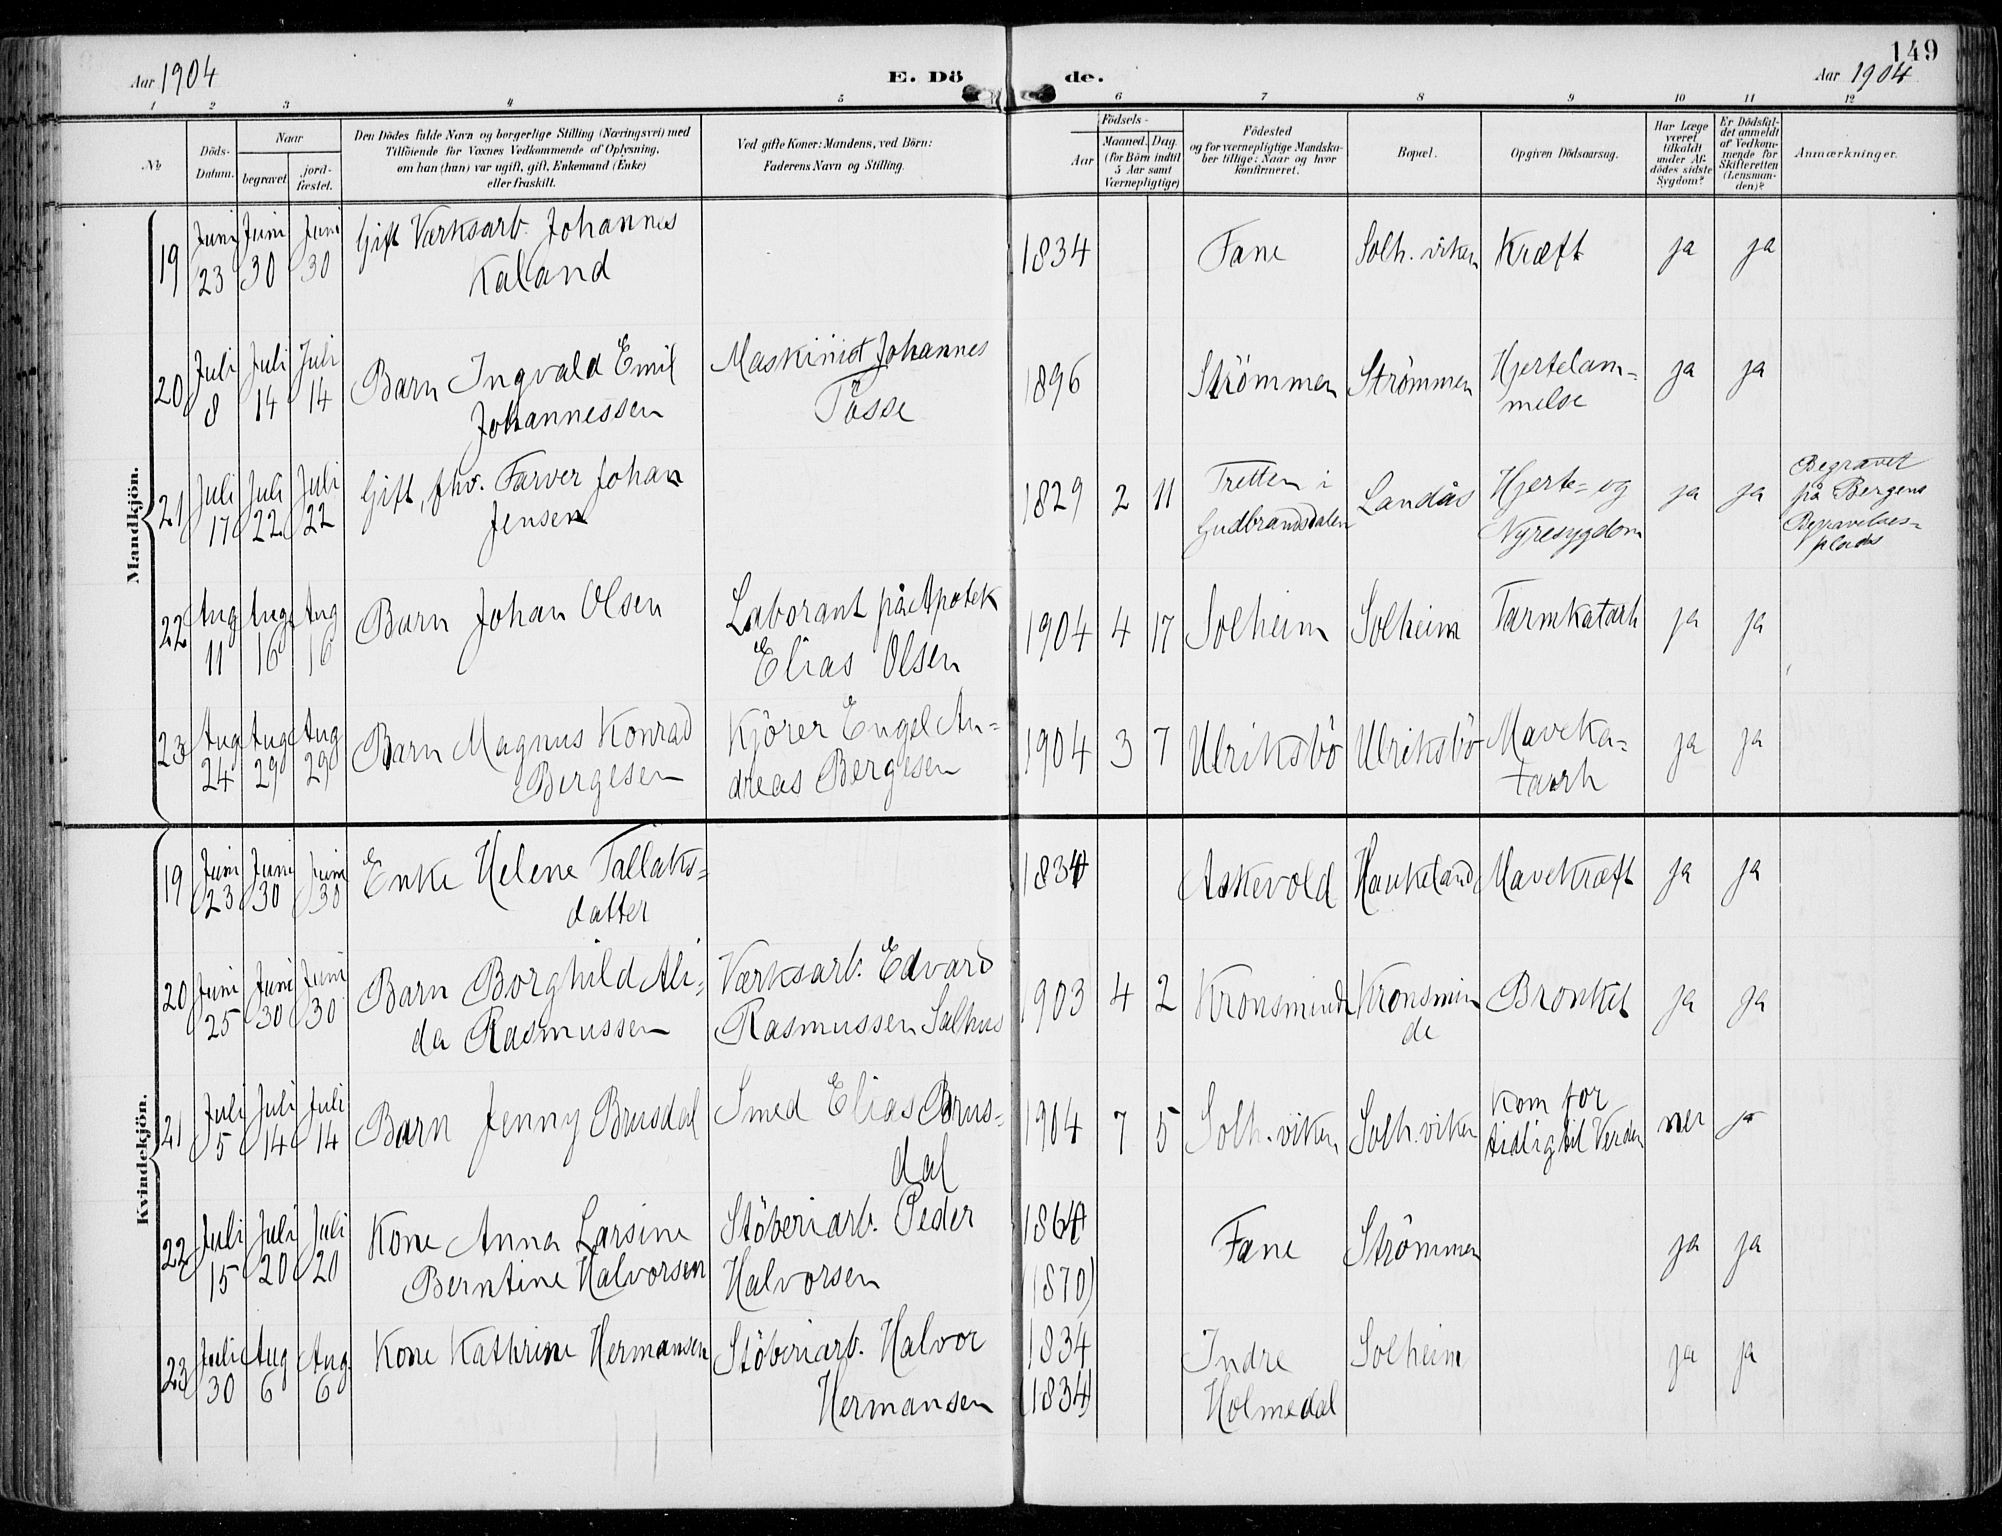 149
Aar 1904
E. Dö de.
Aar 1904
1 2 3 4 5 6 7 8 9 10 11 12
No.
Döds-
Datum.
Naar
begravet.
jord-
fæstet.
Den Dödes fulde Navn og borgerlige Stilling (Næringsvei) med
Tilföiende for Voxnes Vedkommende af Oplysning,
om han (hun) var ugift, gift, Enkemand (Enke)
eller fraskilt.
Ved gifte Koner: Mandens, ved Börn:
Faderens Navn og Stilling.
Födsels-
Aar
Maaned. Dag.
(for Börn indtil
5 Aar samt
Værnepligtige)
Födested
og for værnepligtige Mandska-
ber tillige: Naar og hvor
konfirmeret.
Bopæl.
Opgiven Dödsaarsag.
Har Læge
været
tilkaldt
under Af-
dödes sidste
Sygdom?
Er Dödsfal-
det anmeldt
af Vedkom-
mende for
Skifteretten
(Lensman-
den)?
Anmærkninger.
Mandkjön.
19 Juni 23 Juni 30 Juni 30 Gift Værksarb. Johannes
Kaland
1834 Fane Solh. viken Kræft ja ja
20 Juli 8 Juli 14 Juli 14 Barn Ingvald Emil
Johannessen
Maskinist Johannes
Tösse
1896 Strömmen Strömmen Hjertelam-
melse
ja ja
21 Juli 17 Juli 22 Juli 22 Gift, fhv. Farver Johan
Jensen
1829 2 11 Tretten i
Gudbrandsdalen
Landås Hjerte- og
Nyresygdom
ja ja
Begravet
på Bergens
Begravelses-
plads
22 Aug 11 Aug 16 Aug 16 Barn Johan Olsen
Laborant på Apotek
Elias Olsen
1904 4 17 Solheim Solheim Tarmkatarh ja ja
23 Aug 24 Aug 29 Aug 29 Barn Magnus Konrad
Bergesen
Kjörer Engel An-
dreas Bergesen
1904 3 7 Ulriksbö Ulriksbö Maveka-
tarrh
ja ja
Kvindekjön.
19 Juni 23 Juni 30 Juni 30 Enke Helene Tallaks-
datter
1834 Askevold Haukeland Mavekræft ja ja
20 Juni 25 Juni 30 Juni 30 Barn Borghild Ali-
da Rasmussen
Værksarb. Edvard
Rasmussen Salhus
1903 4 2 Kronsminde Kronsmin
de
Bronkit ja ja
21 Juli 5 Juli 14 Juli 14 Barn Jenny Brusdal
Smed Elias Brus-
dal
1904 7 5 Solh. viken Solh. viken Kom for
tidlig til Verden
nei ja
22 Juli 15 Juli 20 Juli 20 Kone Anna Larsine
Berntine Halvorsen
Stöberiarb. Peder
Halvorsen
1864
(1870)
Fane Strömmen ja ja
23 Juli 30 Aug 6 Aug. 6 Kone Kathrine Hermansen
Stöberiarb. Halvor
Hermansen
1834
(1834)
Indre
Holmedal
Solheim ja ja